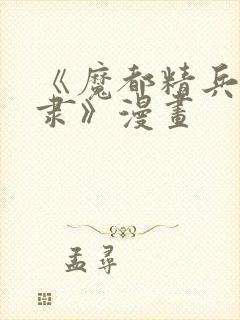 《魔都精兵
隶》漫畫
孟尋